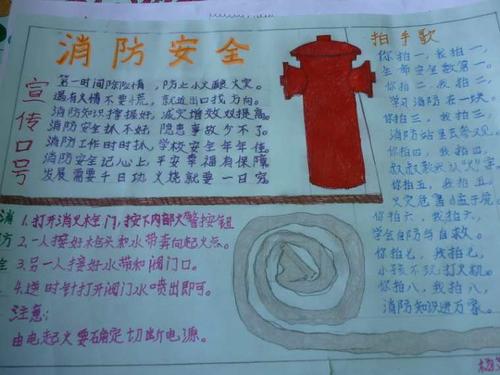 消防安全
宣传口号
第一时间除险情，防止小火酿火灾。
遇有火情不要慌，就近出口找方向。
消防知识掌握好，减灾增效双提高。
消防安全抓不好，隐患事故少不了。
消防工作时时抓，学校安全年年佳。
消防安全记心上，平安幸福有保障
发展需要千日功，火烧就要一日穷。
1.打开消火栓门，按下内部火警按钮
2.一人接好枪头和水带奔向起火点。
3.另一人接好水带和阀门口。
4.逆时针打开阀门水喷出即可。
注意：
由电起火要确定切断电源。
拍手歌
你拍一，我拍一，
生命安全数第一。
你拍二，我拍二，
学习消防在一块，
你拍三，我拍三，
消防站里去参观。
你拍四，我拍四，
你拍五，我拍五，
火灾危害猛于虎，
你拍六，我拍六，
学会自防与自救。
你拍七，我拍七，
小孩不玩打火机。
你拍八，我拍八，
消防知识进万家。